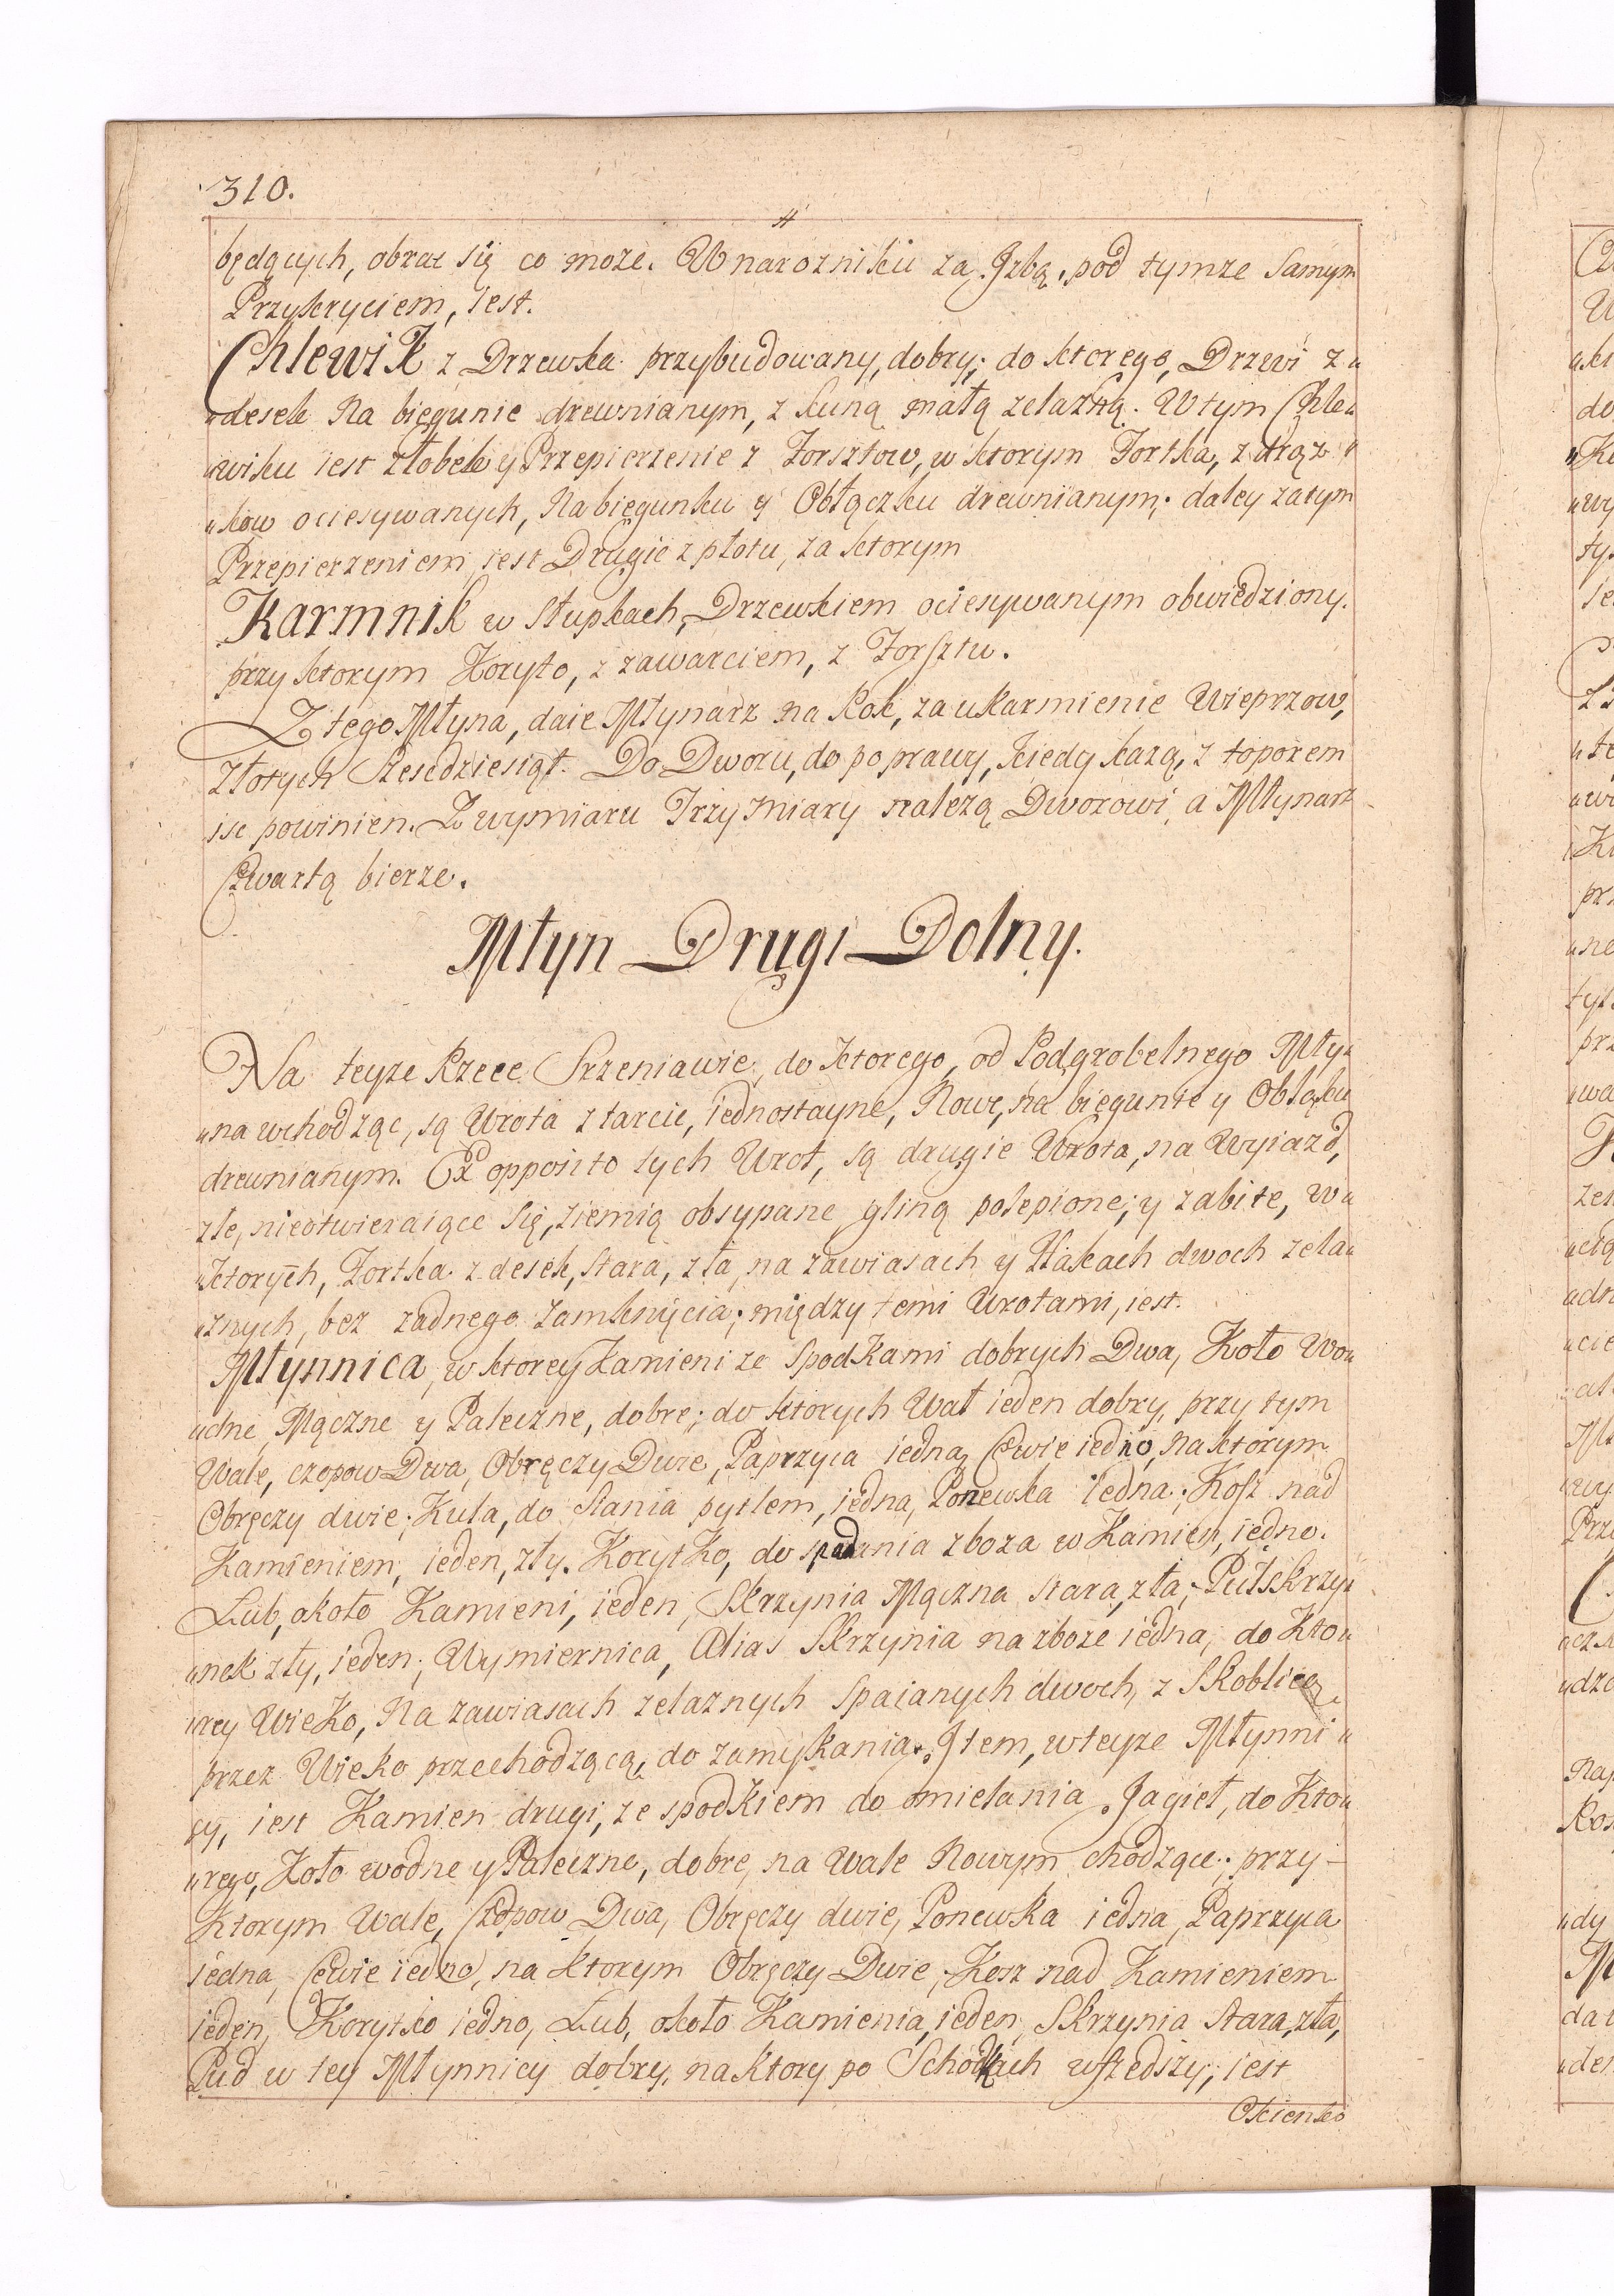 310.
będących, obrać się co może. W narozniku za Jzbą, pod tymze Samym
Przykryciem, iest.
Chlewik z Drzewka przybudowany, dobry; do ktorego, Drzwi z„
„desek Na biegunie drewnianym, z kuną małą zelazną. W tym Chle„
„wiku iest złobek y Przepierzenie z Forsztow, w ktorym Fortka, z drąz„
„kow ociesywanych, Na biegunku y Obłączku drewnianym; daley za tym
Przepierzeniem iest Drugie z płotu, za ktorym
Karmnik w Słupkach, Drzewkiem ociesywanym obwiedziony.
przy ktorym Koryto, z zawarciem, z Forsztu.
Z tego Młyna, daie Młynarz na Rok, za ukarmienie Wieprzow,
Złotych Szesćdziesiąt. Do Dworu, do poprawy, kiedy każą, z toporem
isć powinien. Z wymiaru Trzy Miary należą Dworowi, a Młynarz
Czwartą bierze.
Młyn Drugi Dolny.
Na teyze Rzece Srzeniawie, do ktorego, od Podgrobelnego Mły„
„na wchodząc, są Wrota z tarcic, iednostayne, Nowe, na biegunie y Obłąku
drewnianym. Ex opposito tych Wrot, są drugie Wrota, na Wyiazd,
złe, nieotwieraiące się, ziemią obsypane gliną polepione; y zabite, w„
„ktorych, Fortka z desek, stara, zła, na zawiasach y Hakach dwoch zela„
„znych, bez zadnego zamknięcia; między temi Wrotami, iest.
Młynnica, w ktorey Kamieni ze Spodkami dobrych Dwa, Koło Wo„
„dne, Mączne y Paleczne, dobre; do ktorych Wał ieden dobry, przy tym
Wale, czopow Dwa, Obręczy Dwie, Paprzyca iedna, Cewie iedno, na ktorym
Obręczy dwie; Kula, do Siania pytlem, iedna, Ponewka iedna; Kosz nad
Kamieniem, ieden, zły. Korytko, do spadania zboza w Kamien, iedno.
Lub, około Kamieni, ieden, Skrzynia Mączna stara, zła, Pułskrzy„
„nek zły, ieden; Wymiernica, Alias Skrzynia na zboze iedna, do Kto„
„rey Wieko, Na zawiasach zelaznych Spaianych dwoch, z Skoblicą
przez Wieko przechodzącą, do zamykania. Jtem, w teyze Młynni„
cy, iest Kamien drugi, ze spodkiem do omielania Jagieł, do Kto„
„rego, Koło wodne y Paleczne, dobre, na Wale Nowym chodzące; przy-
Ktorym Wale, Czopow Dwa, Obręczy dwie, Ponewka iedna, Paprzyca
iedna, Cewie iedno, na ktorym Obręczy Dwie, Kosz nad Kamieniem
ieden, Korytko iedno, Lub, około Kamienia, ieden, Skrzynia Stara, zła,
Pud w tey Młynnicy dobry, na ktory po Schodkach wszedszy, iest
Okienko